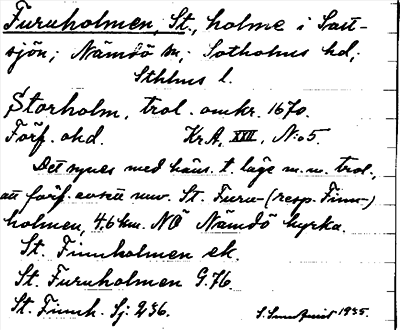 Furuholmen, St., holme i Salt-
sjön; Nämdö sn; Sotholms hd;
Sthlms l.
Storholm, trol. omkr. 1670.
Förf. okd. Kr.A, XXII, N:o 5.
Det synes med häns. t. läge m.m. trol.,
att förf. avsett nuv. St. Furu- (resp. Finn-)
holmen, 4,6 km. NO Nämdö kyrka.
St. Finnholmen ek.
St. Furuholmen G. 76.
St. Finnh. Sj. 236.
1935.